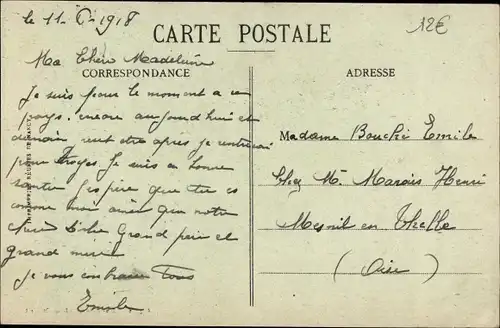 le 11 - 1918
12€
CARTE POSTALE
Ma Chère Madeleine
CORRESPONDANCE
ADRESSE
Je suis pour le moment a ce
pays. encore aujourd'hui et
demain peut être apres je rentrerai
pour Troyes Je suis en bonne
santé J'espère que tu es
comme moi ainsi que notre
chère Grand père et
grand mère
je vous embrasse Tous
Emile
Madame Bouché Emile
Chez Mr Marais Henri
Mesnil en Thelle
(Oise)